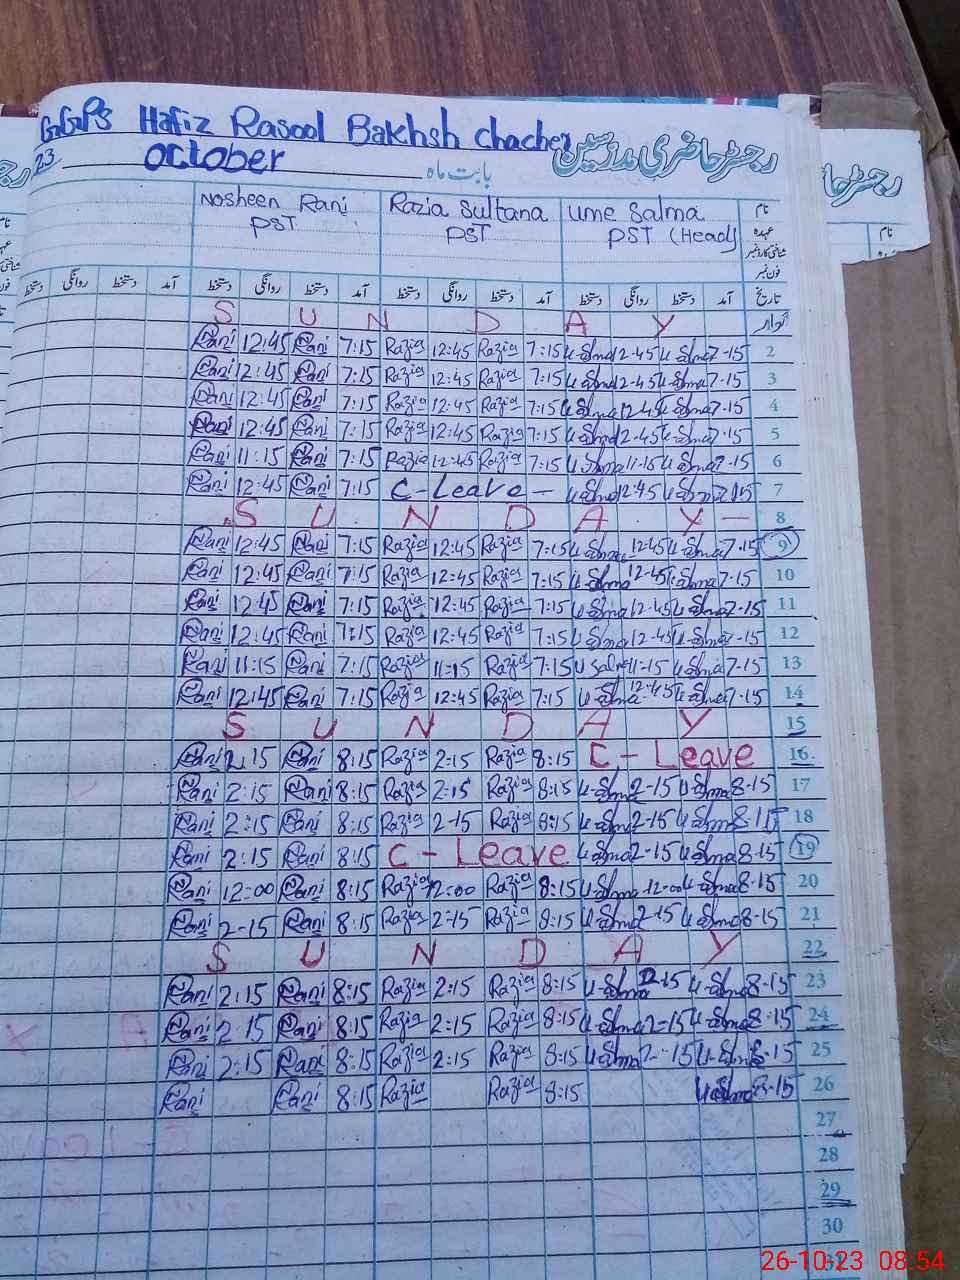 GGPS Hafiz Rasool Bakhsh Chacher
رجسٹر حاضری مدرسین
رجسٹر حا
23 October بابت ماہ
Nosheen Rani Razia Sultana Ume Salma نام
PST PST PST (Head) عہدہ
شناختی کارڈ نمبر
فون نمبر
دستخط روانگی دستخط آمد دستخط روانگی دستخط آمد دستخط روانگی دستخط آمد دستخط روانگی دستخط آمد تاریخ
S U N D A Y اتوار
Rani 12:45 Rani 7:15 Razia 12:45 Razia 7:15 u-Salma 12-45 u-Salma 7-15 2
Rani 12:45 Rani 7:15 Razia 12:45 Razia 7:15 u-Salma 12-45 u-Salma 7-15 3
Rani 12:45 Rani 7:15 Razia 12:45 Razia 7:15 u-Salma 12-45 u-Salma 7-15 4
Rani 12:45 Rani 7:15 Razia 12:45 Razia 7:15 u-Salma 12-45 u-Salma 7-15 5
Rani 11:15 Rani 7:15 Razia 12:45 Razia 7:15 u-Salma u-Salma 7-15 6
Rani 12:45 Rani 7:15 C-Leave - u-Salma 12:45 u-Salma 7-15 7
S U N D A Y - 8
Rani 12:45 Rani 7:15 Razia 12:45 Razia 7:15 u-Salma 12-45 u-Salma 7-15 9
Rani 12:45 Rani 7:15 Razia 12:45 Razia 7:15 u-Salma 12-45 u-Salma 7-15 10
Rani 12:45 Rani 7:15 Razia 12:45 Razia 7:15 u-Salma 12-45 u-Salma 7-15 11
Rani 12:45 Rani 7:15 Razia 12:45 Razia 7:15 u-Salma 12-45 u-Salma 7-15 12
Rani 11:15 Rani 7:15 Razia 11:15 Razia 7:15 u Salma 11-15 u-Salma 7-15 13
Rani 12:45 Rani 7:15 Razia 12:45 Razia 7:15 u-Salma 12-45 u-Salma 7-15 14
S U N D A Y 15
Rani 2:15 Rani 8:15 Razia 2:15 Razia 8:15 C - Leave 16
Rani 2:15 Rani 8:15 Razia 2:15 Razia 8:15 u-Salma 2-15 u-Salma 8-15 17
Rani 2:15 Rani 8:15 Razia 2-15 Razia 8:15 u-Salma 2-15 u-Salma 8-15 18
Rani 2:15 Rani 8:15 C - Leave u-Salma 2-15 u-Salma 8-15 19
Rani 12:00 Rani 8:15 Razia 12:00 Razia 8:15 u-Salma 12-00 u-Salma 8-15 20
Rani 2-15 Rani 8:15 Razia 2-15 Razia 8:15 u-Salma 2-15 u-Salma 8-15 21
S U N D A Y 22
Rani 2:15 Rani 8:15 Razia 2:15 Razia 8:15 u-Salma 2-15 u-Salma 8-15 23
Rani 2 15 Rani 8:15 Razia 2:15 Razia 8:15 u-Salma 2-15 u-Salma 8-15 24
Rani 2:15 Rani 8:15 Razia 2:15 Razia 8:15 u-Salma 2-15 u-Salma 8-15 25
Rani Rani 8:15 Razia Razia 8:15 u-Salma 8-15 26
27
28
29
30
31
26-10-23 08.54